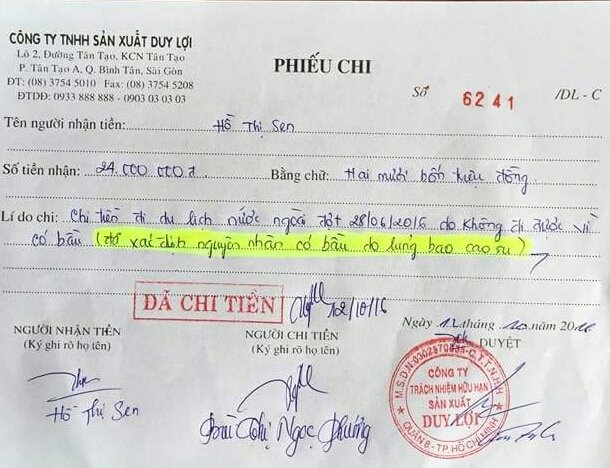 CÔNG TY TNHH SẢN XUẤT DUY LỢI
Lô 2, Đường Tân Tạo, KCN Tân Tạo
P. Tân Tạo A, Q. Bình Tân, Sài Gòn
ĐT: (08) 3754 5010 Fax: (08) 3754 5208
ĐTDĐ: 0933 888 888 - 0903 03 03 03
PHIẾU CHI
Số 6241 /DL - C
Tên người nhận tiền: Hồ Thị Sen
Số tiền nhận: 24.000.000đ Bằng chữ: Hai mươi bốn triệu đồng
Lí do chi: Chi tiền đi du lịch nước ngoài đợt 28/06/2016 do không đi được vì
có bầu (đã xác định nguyên nhân có bầu do lủng bao cao su)
ĐÃ CHI TIỀN 12/10/16
Ngày 12 tháng 10 năm 2016
NGƯỜI NHẬN TIỀN NGƯỜI CHI TIỀN DUYỆT
(Ký ghi rõ họ tên) (Ký ghi rõ họ tên)
M.S.D.N:0302570695-C.T.T.N.H.H
CÔNG TY
TRÁCH NHIỆM HỮU HẠN
SẢN XUẤT
DUY LỢI
QUẬN 8 - TP. HỒ CHÍ MINH
Hồ Thị Sen Bùi Thị Ngọc Phương